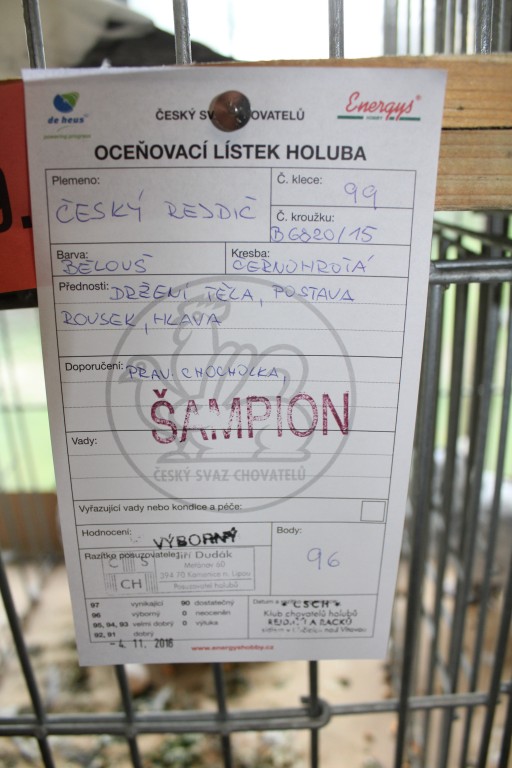 de heus
powering progress
ČESKÝ SVAZ CHOVATELŮ
Energys
HOBBY
OCEŇOVACÍ LÍSTEK HOLUBA
Plemeno:
ČESKÝ REJDIČ
Č. klece: 99
Č. kroužku:
B6820/15
Barva:
BĚLOUŠ
Kresba:
ČERNOHROTÁ
Přednosti: DRŽENÍ TĚLA, POSTAVA
ROUSEK, HLAVA
Doporučení: PRAV. CHOCHOLKA,
ŠAMPION
Vady:
ČESKÝ SVAZ CHOVATELŮ
Vyřazující vady nebo kondice a péče:
Hodnocení: VÝBORNÝ
Body:
96
Razítko posuzovatele: Jiří Dudák
C S
CH
394 70 Kamenice n. Lipou
Posuzovatel holubů
97 vynikající 90 dostatečný
96 výborný 0 neoceněn
95, 94, 93 velmi dobrý 0 výluka
92, 91 dobrý
Datum a
ČSCH
Klub chovatelů holubů
REJDIČŮ A RACKŮ
- 4. 11. 2016
www.energyshobby.cz